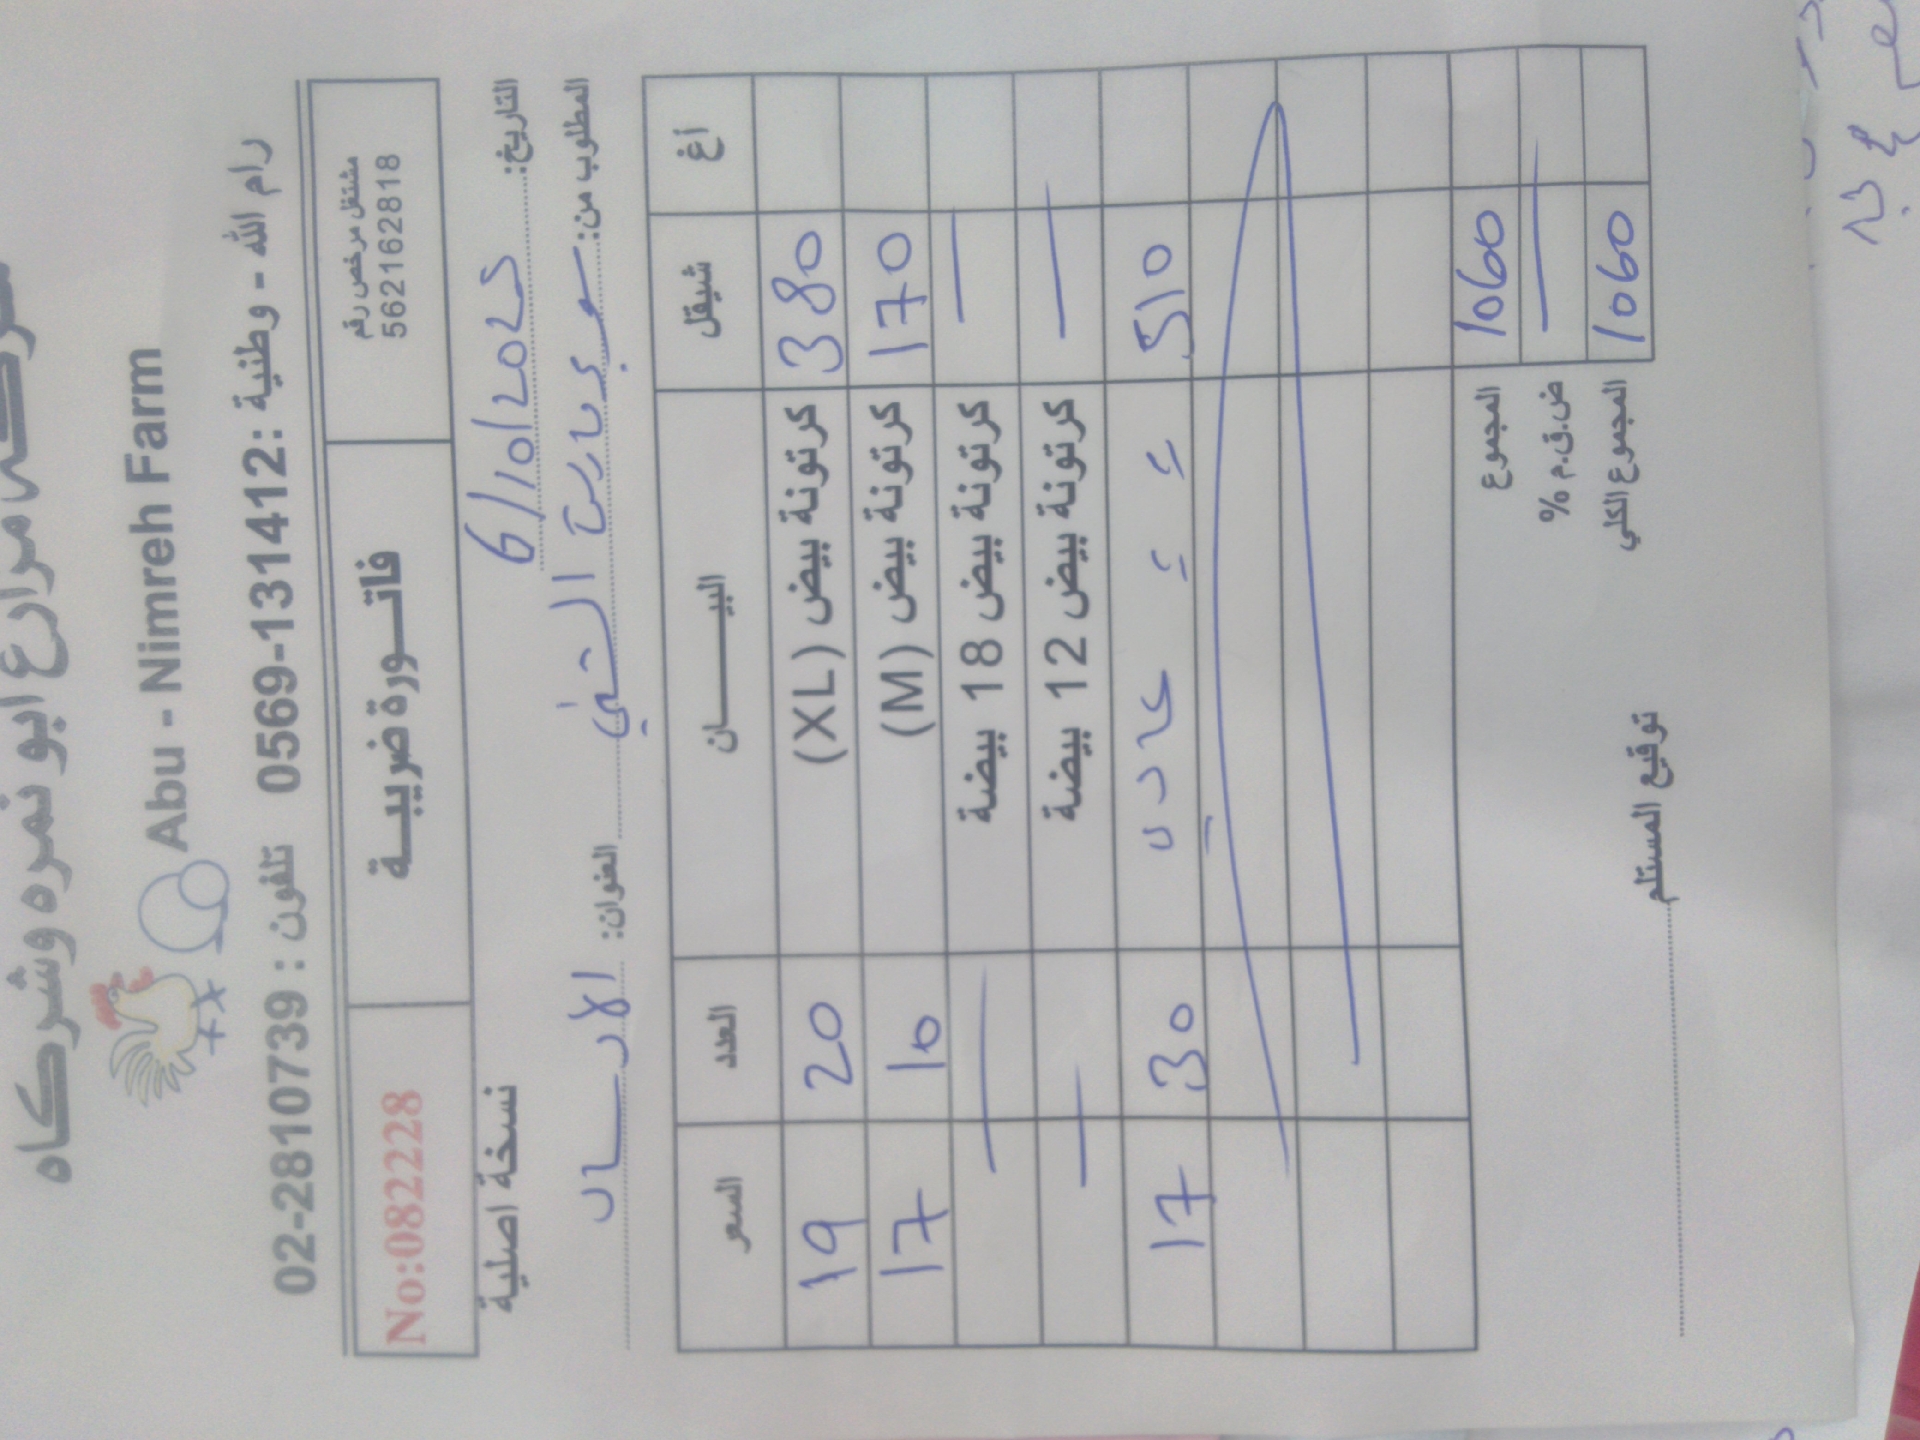 شركة مزارع ابو نمره وشركاه
Abu - Nimreh Farm
رام الله - وطنية :0569-131412 تلفون : 02-2810739
مشتغل مرخص رقم
562162818
فاتـــورة ضريبيـــة
No:082228
التاريخ: 6/10/2025
نسخة اصلية
المطلوب من:
العنوان: الارسال
السعر العدد البيـــــــان شيقل أغ
19 20 كرتونة بيض (XL) 380
17 10 كرتونة بيض (M) 170
كرتونة بيض 18 بيضة
كرتونة بيض 12 بيضة
17 30 510
المجموع 1060
ض.ق.م %
المجموع الكلي 1060
توقيع المستلم